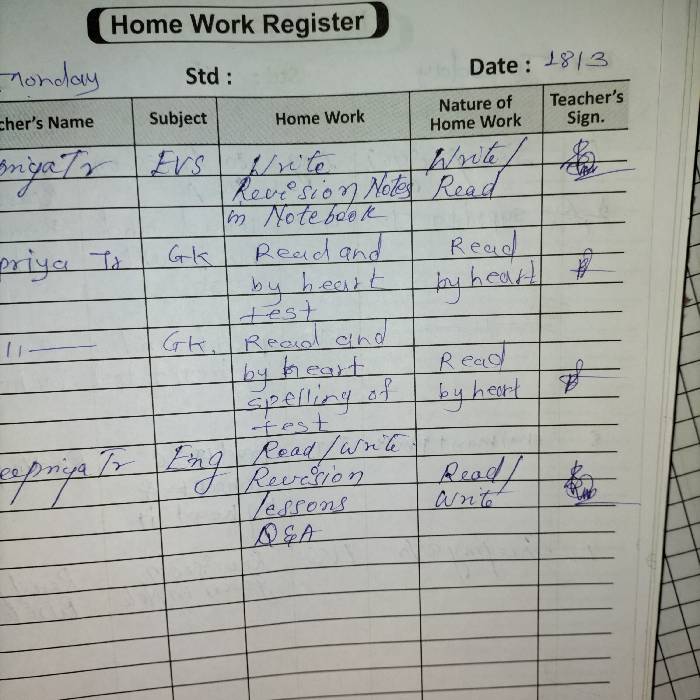 Home Work Register
Monday Std : Date : 18/3
cher's Name Subject Home Work Nature of Home Work Teacher's Sign.
priya Tr EVS Write Write/
Revision Notes Read
in Notebook
priya Tr GK Read and Read
by heart by heart
test
11 — GK. Read and
by heart Read
spelling of by heart
test
eepriya Tr Eng Read/Write
Revision Read/
lessons Write
Q&A